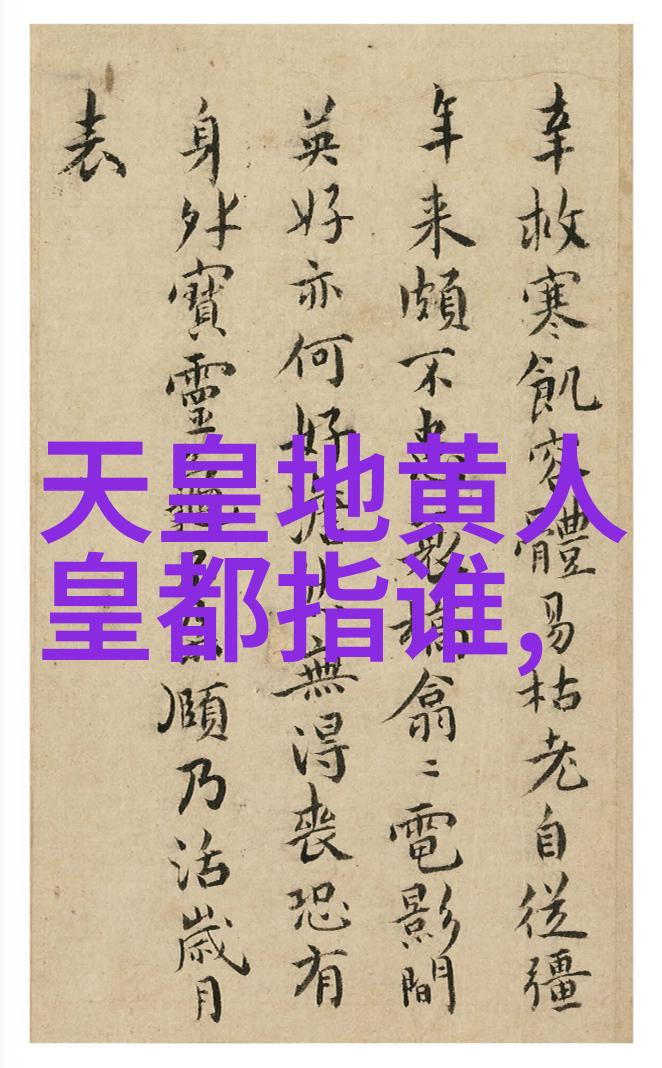 天皇地黄人
皇都指谁,
辛救寒飢容體易枯老自從彊
年来頗不 翕〻電影間
英好亦何好 無得喪恐有
身外寶靈 頤乃活歲月
表